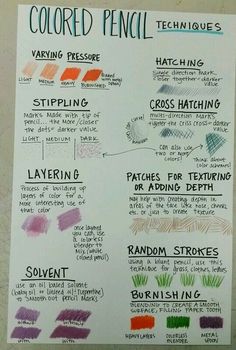 COLORED PENCIL TECHNIQUES
VARYING PRESSURE
LIGHT MEDIUM HEAVY BURNISHED
STIPPLING
Marks made with tip of
pencil... the more/closer
the dots = darker value
LIGHT MEDIUM DARK
LAYERING
Process of building up
layers of color for a
more interesting use
of that color
once layered
you can use
a colorless
blender to
mix/white
colored pencil
SOLVENT
use an oil based solvent
(baby oil) or (linseed oil + turpentine)
to smooth out pencil marks
without without
with with
HATCHING
single direction mark
closer together = darker
value
CROSS HATCHING
multi-direction marks
tighter the criss cross = darker
value
can also use
two or more
colors!
Think above
(color schemes)
PATCHES FOR TEXTURING
OR ADDING DEPTH
may help with creating depth in
areas of the face like nose, cheeks
etc. or just to create texture
RANDOM STROKES
using a blunt pencil, use this
technique for grass, clothes, leaves
BURNISHING
BLENDING TO CREATE A SMOOTH
SURFACE, FILLING PAPER TOOTH
HEAVY LAYERS
COLORLESS
BLENDER
METAL
SPOON